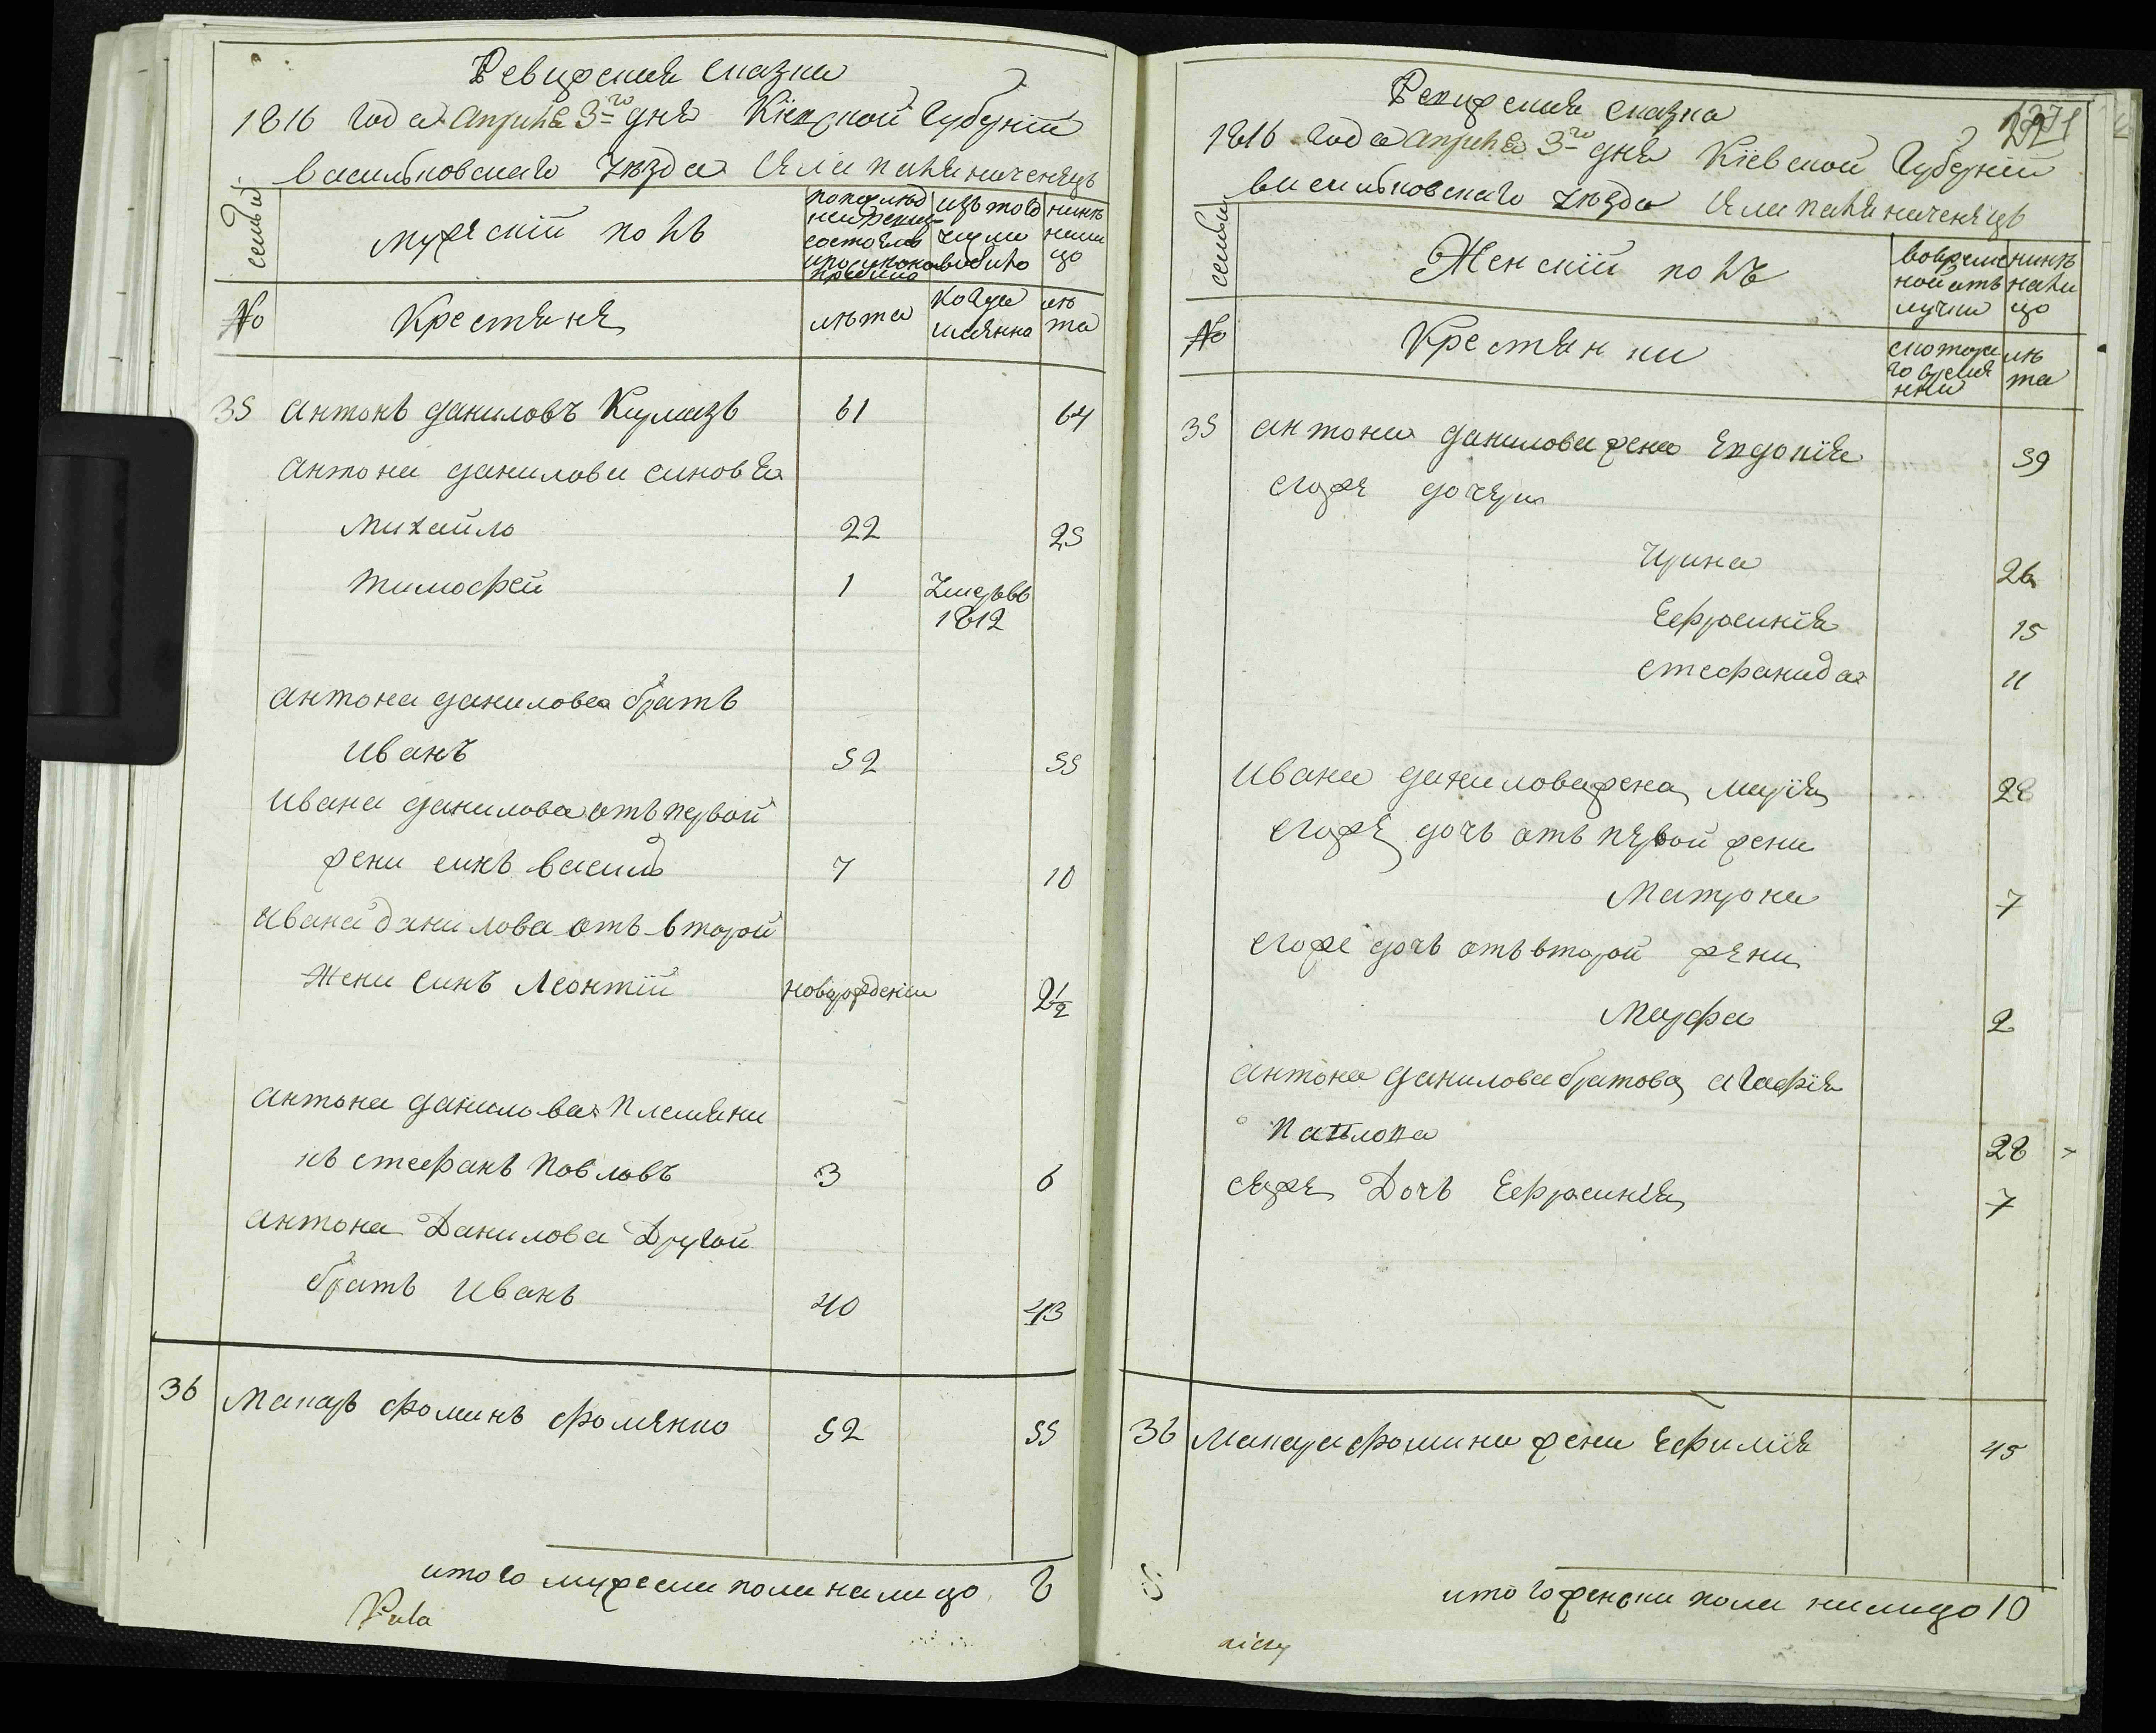 Ревижская сказка
1816 года априля 3го дня Кіевской Губерніи
васильковскаго уезда села паляниченецъ
семьи
мужескій полъ
изъ того
числа
выбило
нинѣ
на ли
цо
№
Крестяня
лѣта
Когда
имянно
лѣ
та
35 антонъ даниловъ Кирмизъ 61 64
антона данилова синовья
михайло 22 25
тимофей 1 умеръвъ
1812
антона данилова братъ
иванъ 52 55
ивана данилова отъ первой
жени синъ василь 7 10
ивана данилова отъ второй
жени синъ леонтій новорожденій 2½
антона данилова племяни
къ стефанъ Повловъ 3 6
антона Данилова Другой
братъ иванъ 40 43
36 макаръ фоминъ фоменко 52 55
итого мужеска пола на лицо 8
Ревижская сказка
1816 года априля 3го дня Кіевской Губерніи
васильковскаго уезда села паляниченецъ
семьи
Женскій полъ
вовреме
ной отъ
лучки
нинѣ
нали
цо
№
Крестянки
скотора
го време
нни
лѣ
та
35 антона данилова жена Евдокія 59
егоже дочери
ирина 26
Ефросинія 15
стефанида 11
ивана данилова жена марія 28
егоже дочь отъ первой жени
матрона 7
егоже дочь отъ второй жени
марфа 2
антона данилова братова агафія
павлова 28
еяже Дочь Ефросинія 7
36 макара фомина жена Ефимія 45
итого женска пола налицо 10